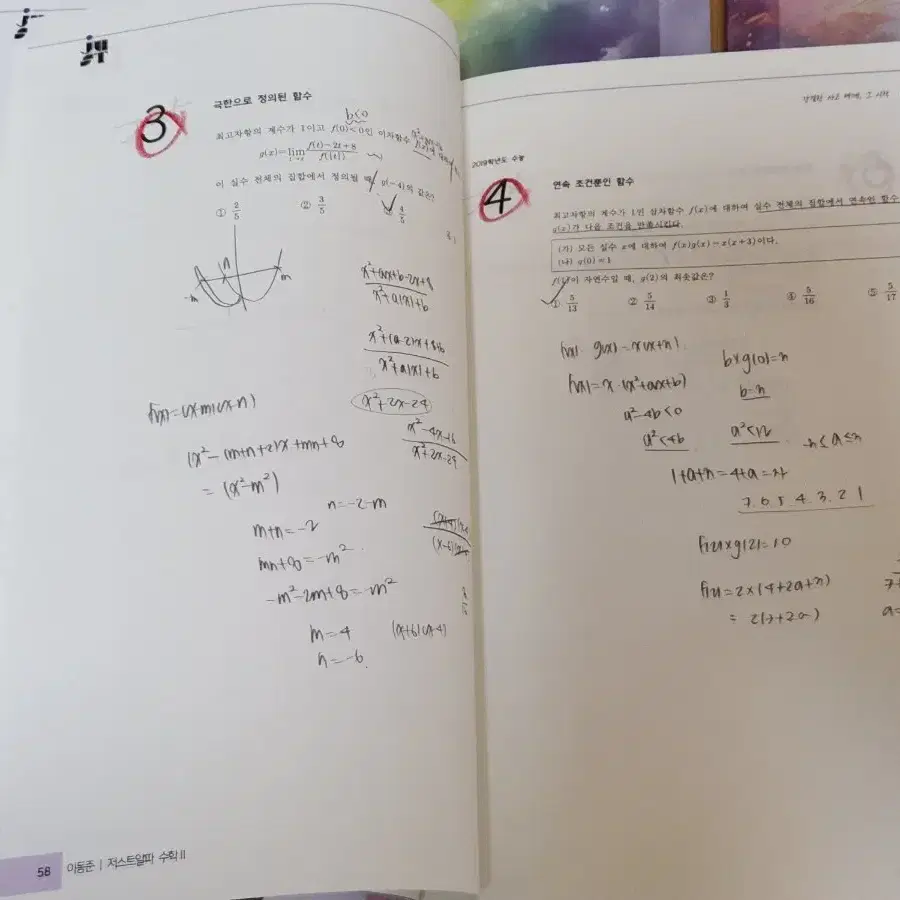 ju
ST
3
극한으로 정의된 함수
b<0
최고차항의 계수가 1이고 f(0)<0인 이차함수
g(x)=lim f(t)-2t+8 / f(|t|)
이 실수 전체의 집합에서 정의될 때, g(-4)의 값은?
① 2/5 ② 3/5 4/5
n
-m m
x²+ax+b-2x+8 / x²+a|x|+b
x²+(a-2)x+8+b / x²+a|x|+b
x²+2x-24
f(x)=(x-m)(x-n)
x²-4x-16 / x²+2x-24
(x²-(m+n+2)x+mn+8
=(x²-m²)
n=-2-m
m+n=-2
mn+8=-m²
-m²-2m+8=-m²
m=4 (x+6)(x-4)
n=-6.
58 이동준 | 저스트알파 수학II
2019학년도 수능
4
연속 조건뿐인 함수
최고차항의 계수가 1인 삼차함수 f(x)에 대하여 실수 전체의 집합에서 연속인 함수
g(x)가 다음 조건을 만족시킨다.
(가) 모든 실수 x에 대하여 f(x)g(x)=x(x+3)이다.
(나) g(0)=1
f(1)이 자연수일 때, g(2)의 최솟값은?
① 5/13 ② 5/14 ③ 1/3 ④ 5/16 ⑤ 5/17
f(x)·g(x)=x(x+3)
b×g(0)=3
f(x)=x·(x²+ax+b)
b=3
a²-4b<0
a²<4b a²<12 -3≤a≤3
1+a+3=4+a=자
7.6.5.4.3.2 1
f(2)×g(2)=10
f(2)=2×(4+2a+3)
=2(7+2a)